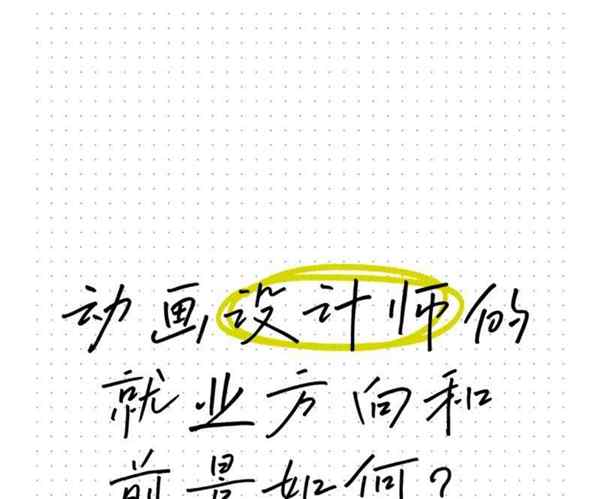 动画设计师的
就业方向和
前景如何?